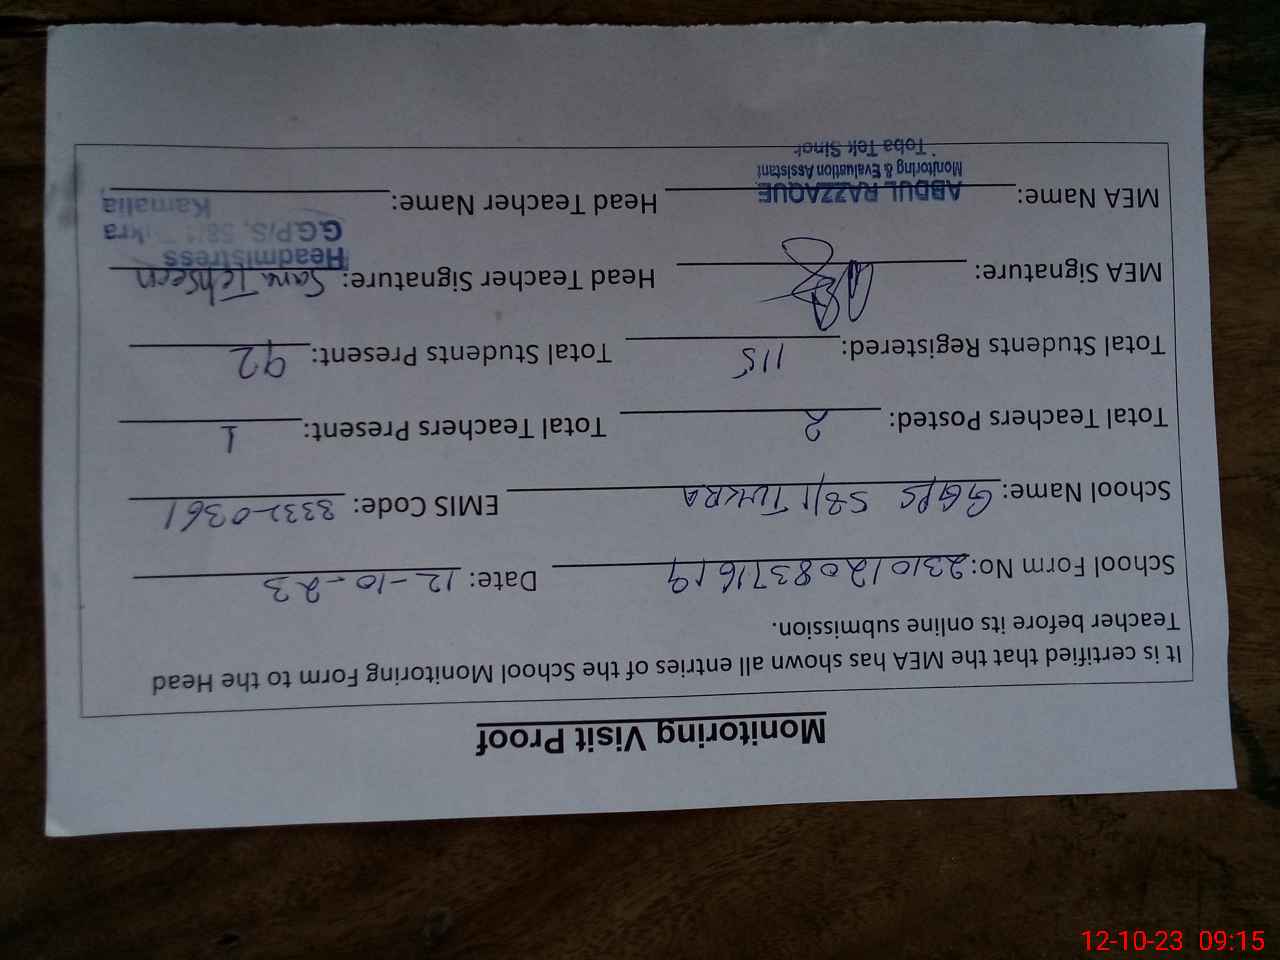 Monitoring Visit Proof
It is certified that the MEA has shown all entries of the School Monitoring Form to the Head
Teacher before its online submission.
School Form No: 23101208371619 Date: 12-10-23
School Name: GGPS 58/1 TUKRA EMIS Code: 3332-0361
Total Teachers Posted: 2 Total Teachers Present: 1
Total Students Registered: 115 Total Students Present: 92
MEA Signature: Head Teacher Signature: Sana Tehseen
Headmistress
G.G.P/S, 58/
Kamalia
MEA Name: ABDUL RAZZAQUE Head Teacher Name:
Monitoring & Evaluation Assistant
Toba Tek Singh
12-10-23 09:15